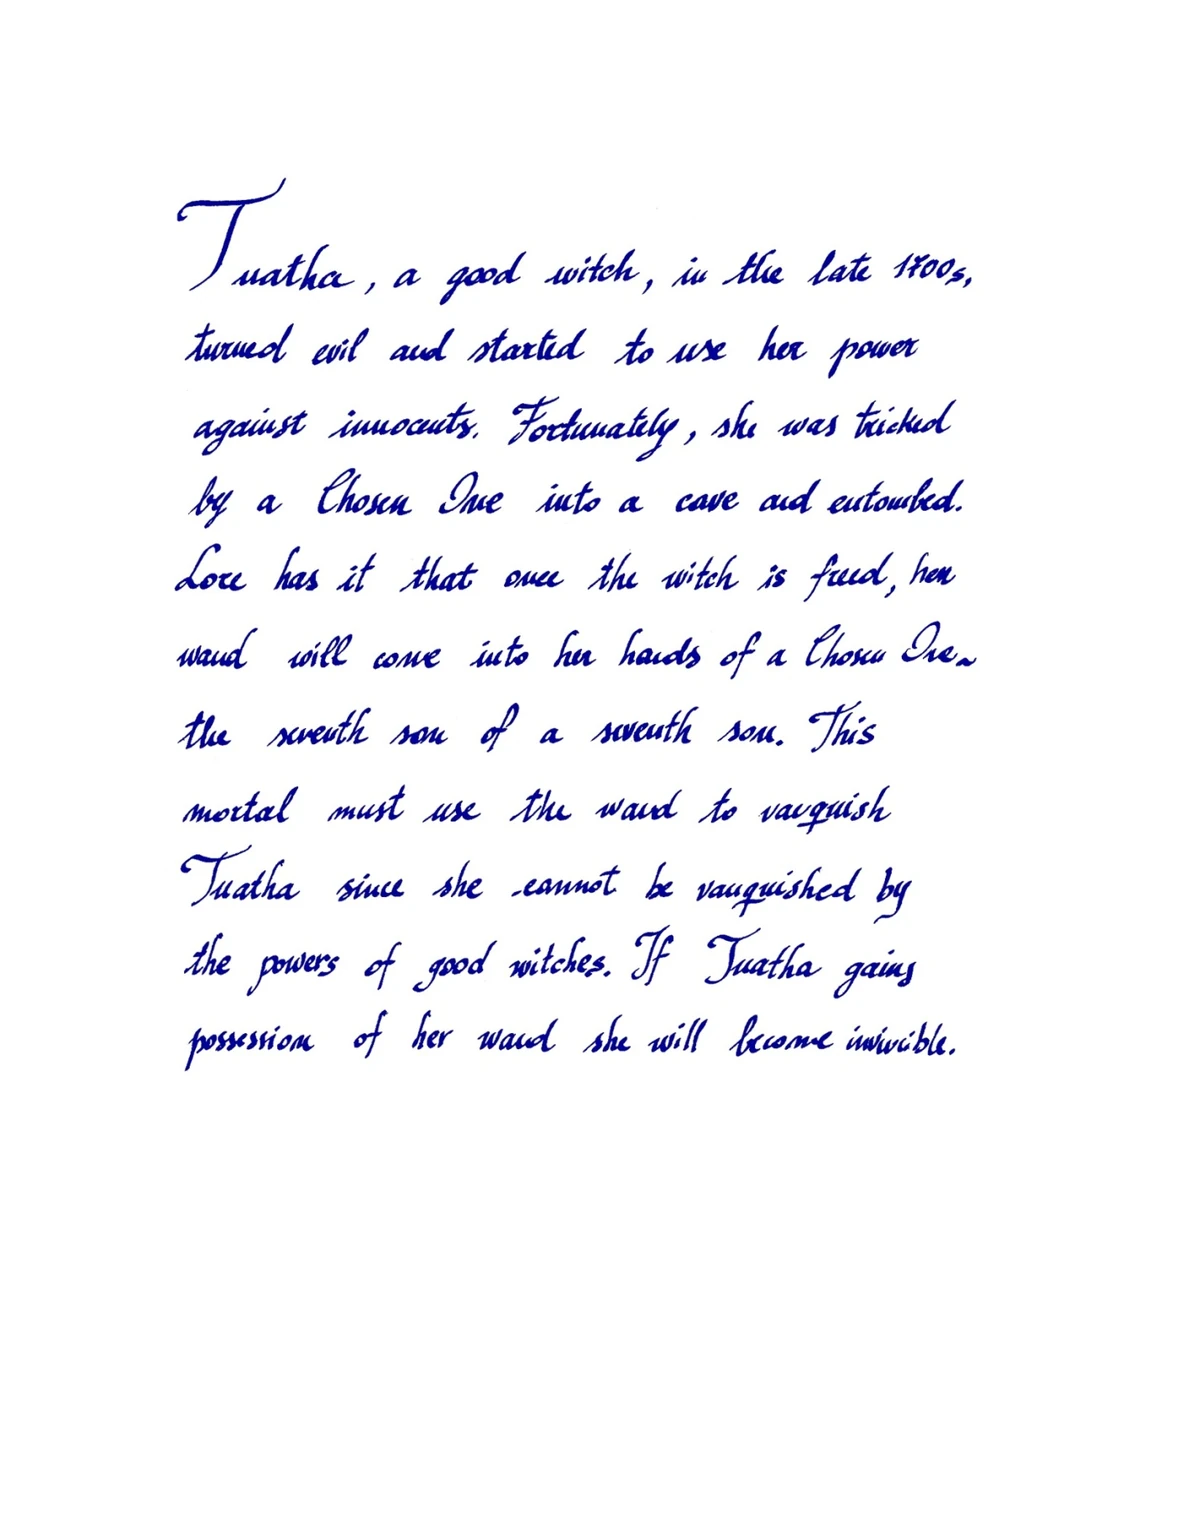 Tuatha, a good witch, in the late 1700s,
turned evil and started to use her power
against innocents. Fortunately, she was tricked
by a Chosen One into a cave and entombed.
Lore has it that once the witch is freed, her
wand will come into her hands of a Chosen One~
the seventh son of a seventh son. This
mortal must use the wand to vanquish
Tuatha since she cannot be vanquished by
the powers of good witches. If Tuatha gains
possession of her wand she will become invincible.